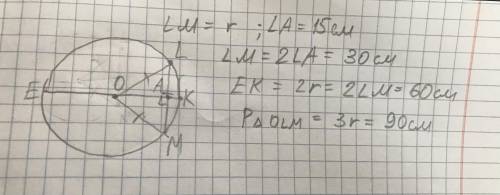 LM = r ; LA = 15см
LM = 2LA = 30см
EK = 2r = 2LM = 60см
P△OLM = 3r = 90см
L
E O A K
M